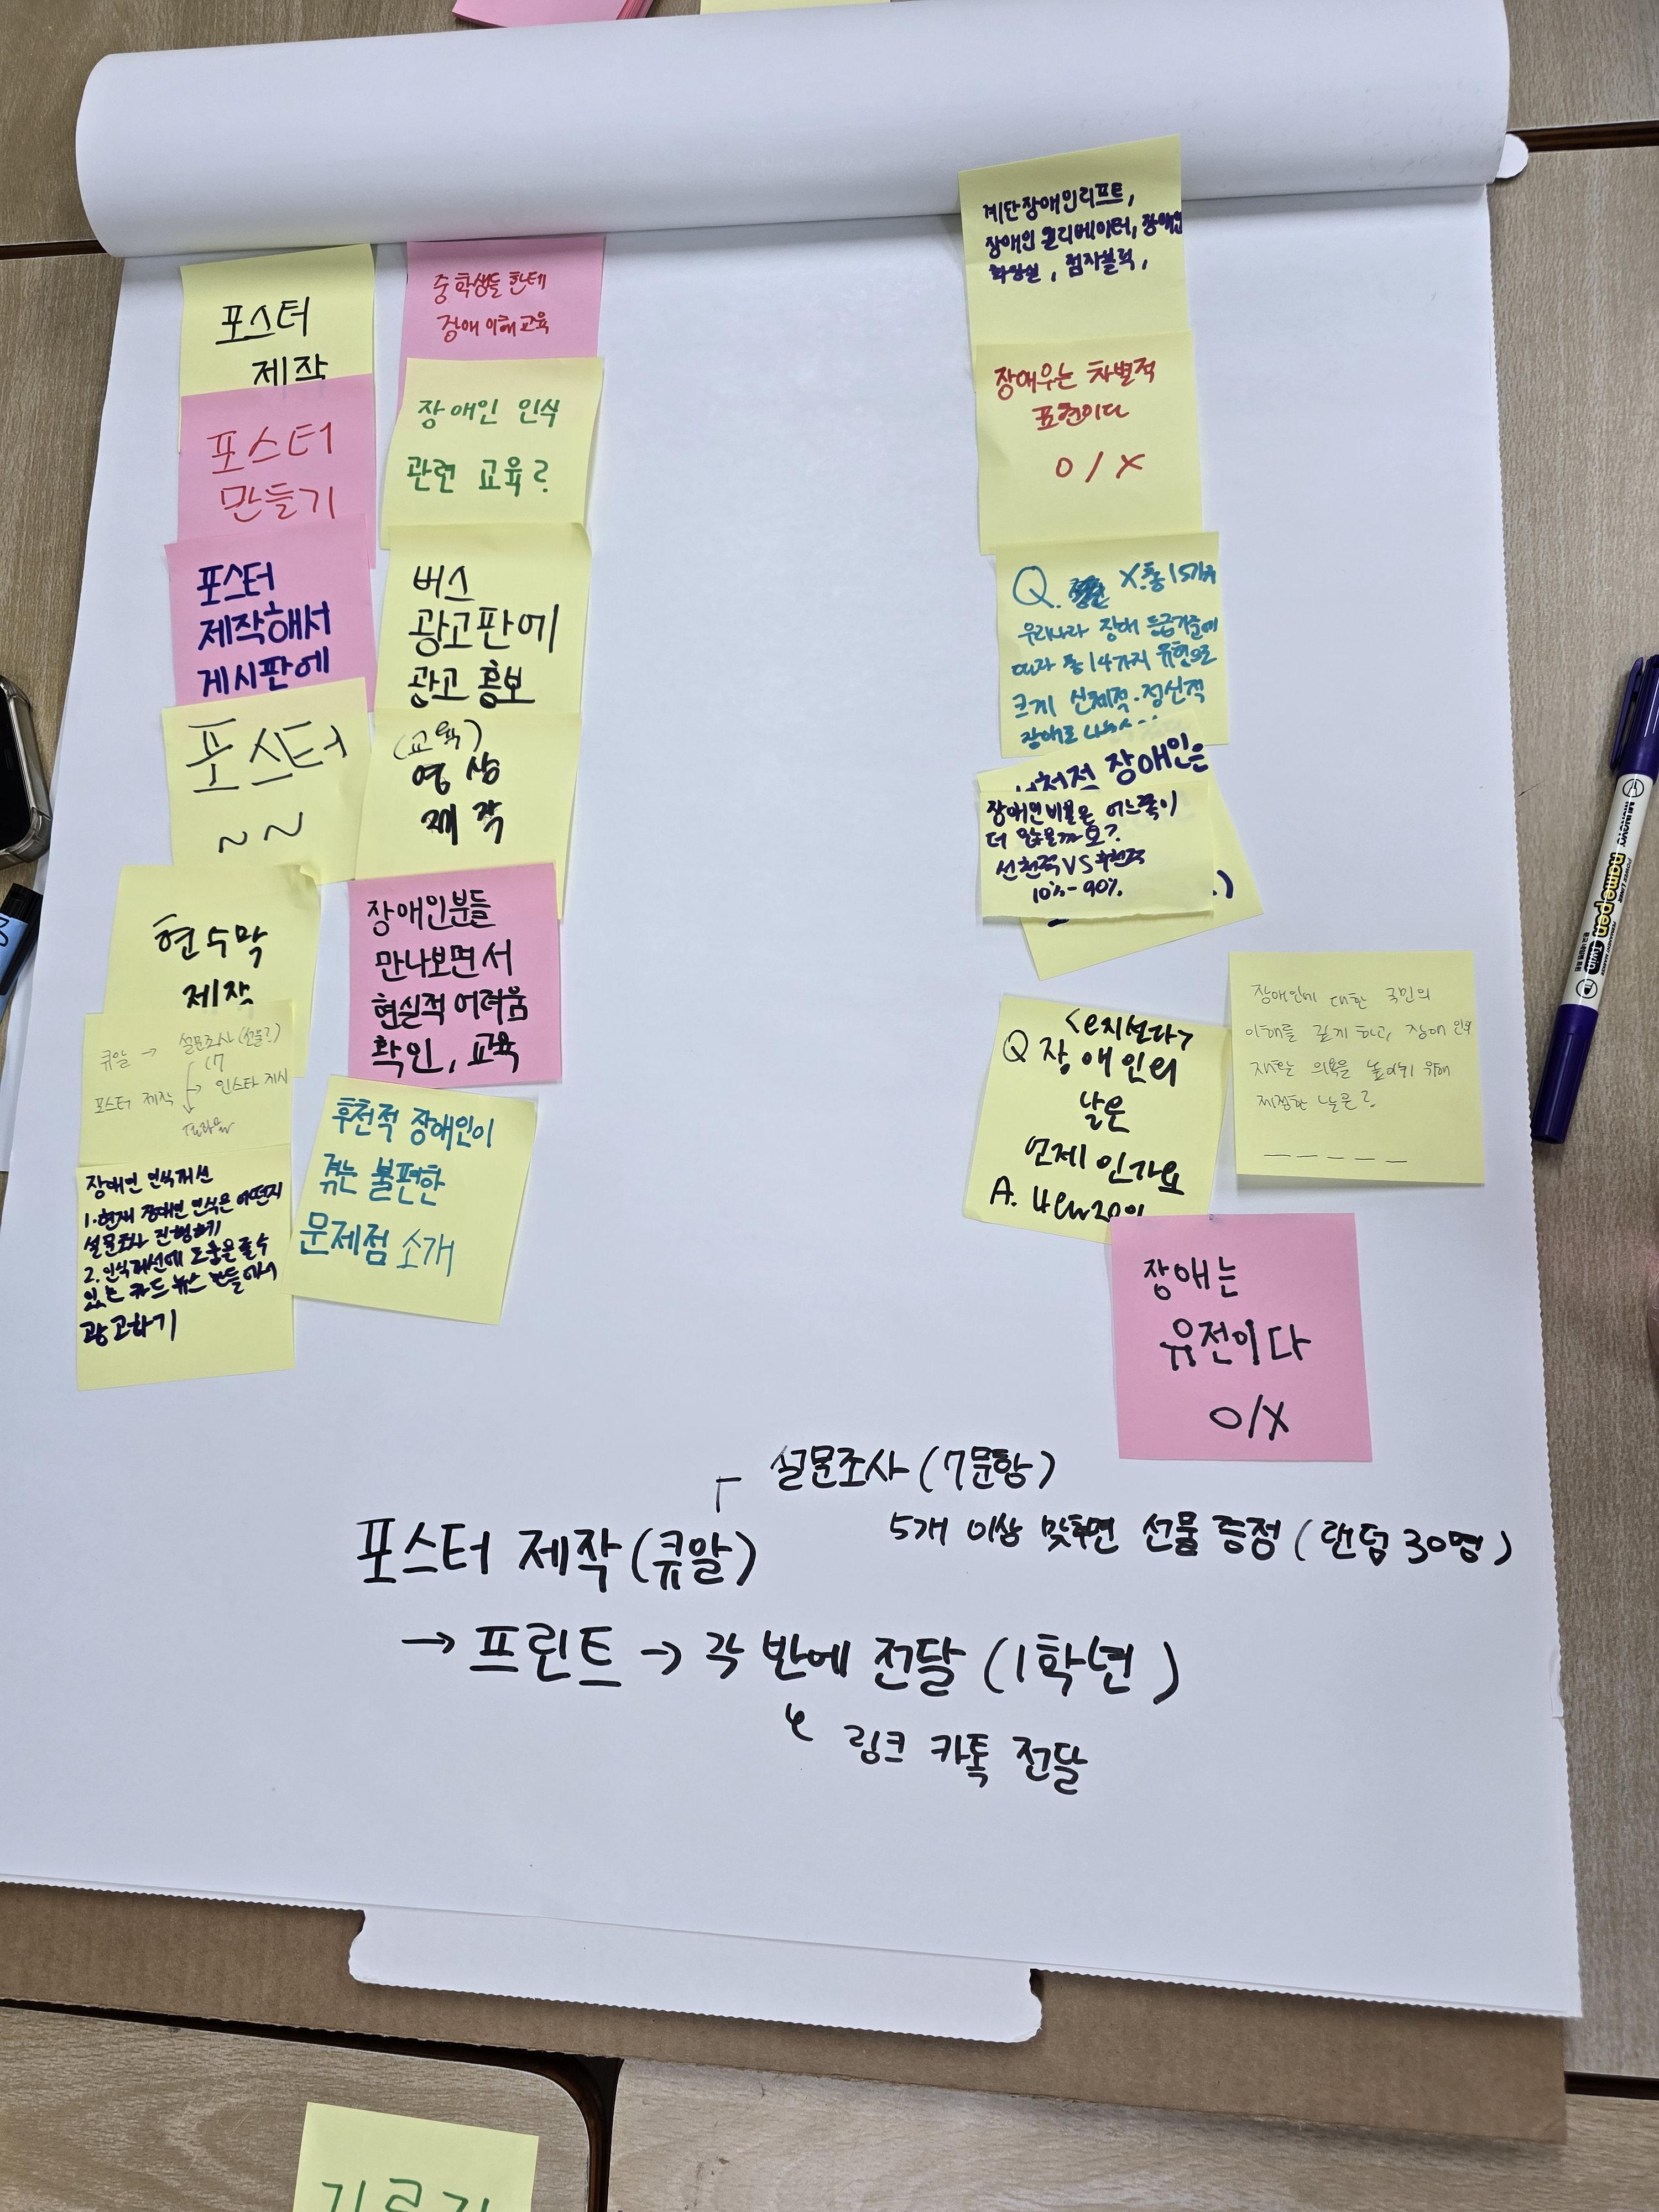 포스터
제작
포스터
만들기
포스터
제작해서
게시판에
포스터
~~
현수막
제작
큐알 → 설문조사(선물?)
포스터 제작 → 인스타 게시
장애인 인식개선
1. 현재 장애인 인식은 어떤지
설문조사 진행하기
2. 인식개선에 도움을 줄 수
있는 카드 뉴스 만들어서
광고하기
중학생들 한테
장애 이해 교육
장애인 인식
관련 교육?
버스
광고판에
광고 홍보
(교육)
영상
제작
장애인분들
만나보면서
현실적 어려움
확인, 교육
후천적 장애인이
겪는 불편한
문제점 소개
계단장애인리프트,
장애인 엘리베이터, 장애인
화장실, 점자블럭,
장애우는 차별적
표현이다
O / X
Q. X. 총 15가지
우리나라 장애 등급기준에
따라 총 14가지 유형으로
크게 신체적·정신적
장애로
장애인은
장애인비율은 어느쪽이
더 많을까요?
선천적 VS 후천적
10%-90%
<e지선다>
Q 장애인의
날은
언제인가요
A. 4월 20일
장애인에 대한 국민의
이해를 깊게 하고, 장애인의
재활 의욕을 높이기 위해
제정한 날은?
_ _ _ _ _
장애는
유전이다
O/X
설문조사 (7문항)
5개 이상 맞추면 선물 증정 (랜덤 30명)
포스터 제작(큐알)
→ 프린트 → 각 반에 전달 (1학년)
링크 카톡 전달
namepen
Twin